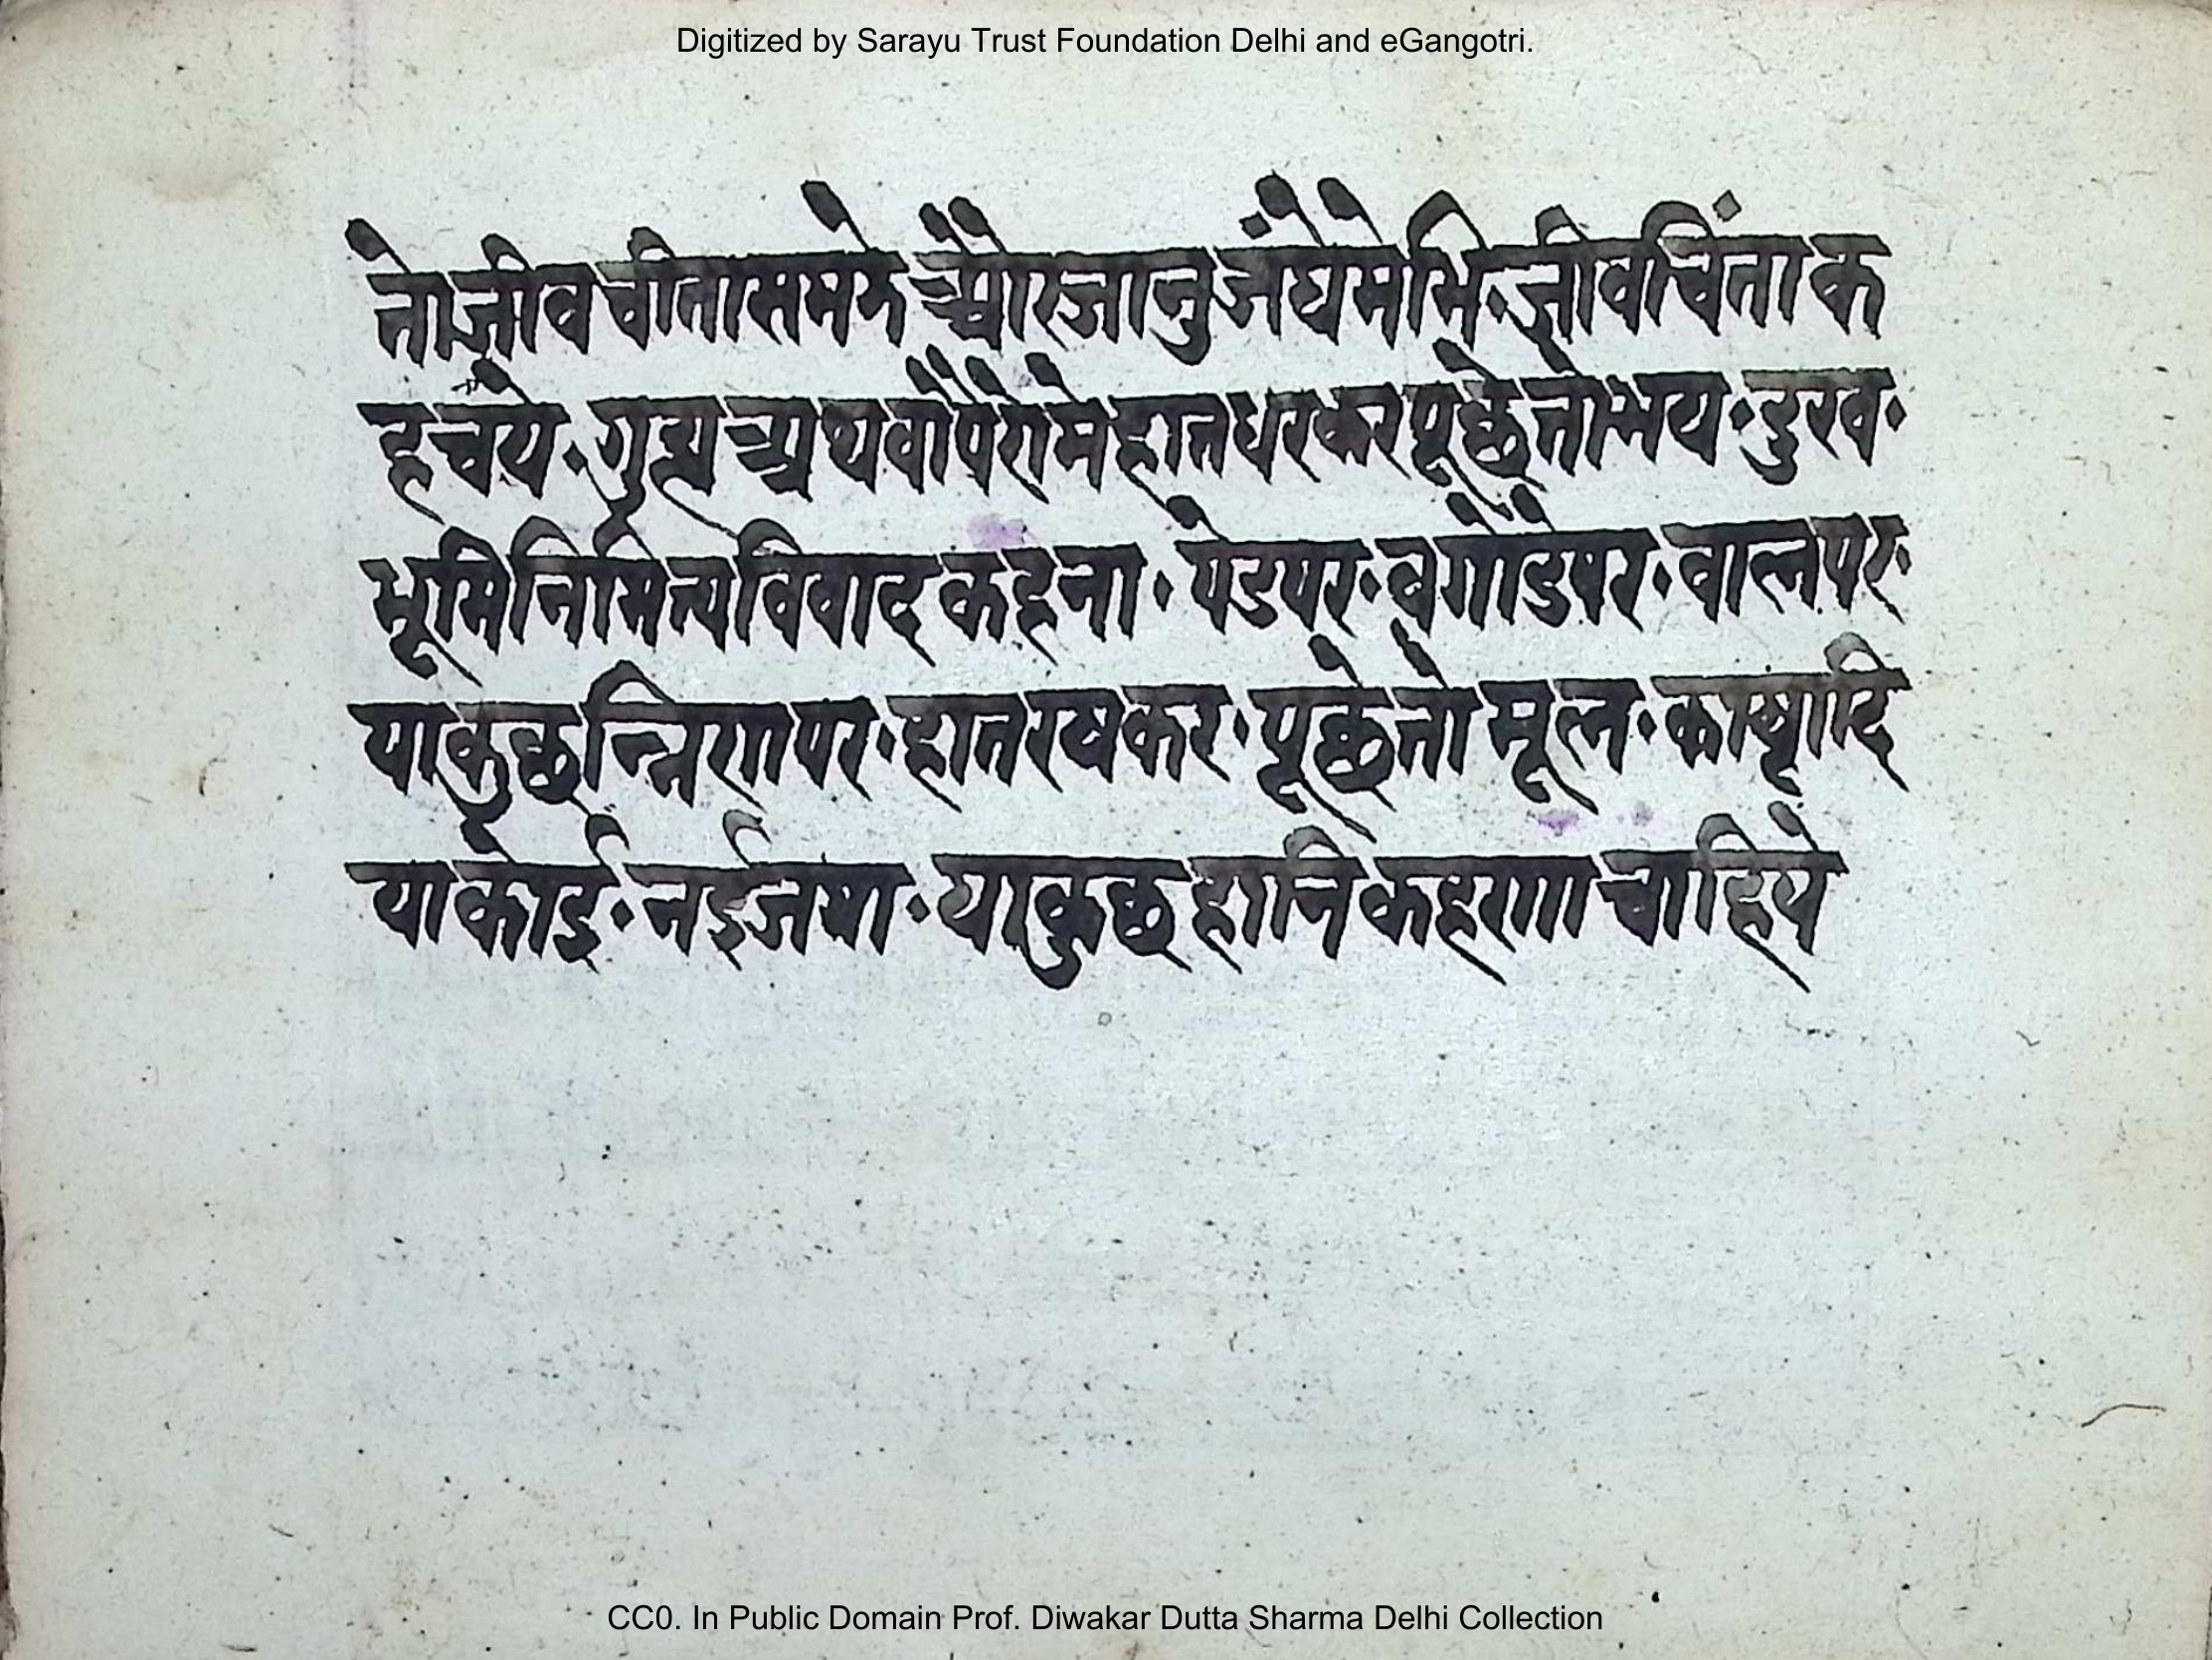 Digitized by Sarayu Trust Foundation Delhi and eGangotri.
तोजीवचीतासमके औरजानुजंघेमेभि·जीवचिंताक
हचये·गुह्यअथवापैरोमेहातधरकरपूछेतोभय·दुरव·
भूमिनिमित्यविवादकहना·पेडपर·वगौडेपर·वालपर·
याकुछत्रिणपर·हातरषकर·पूछेतो मूल·काष्ठादि
याकोई·नईजषा·याकुछहानिकहणा चाहिये
CC0. In Public Domain Prof. Diwakar Dutta Sharma Delhi Collection